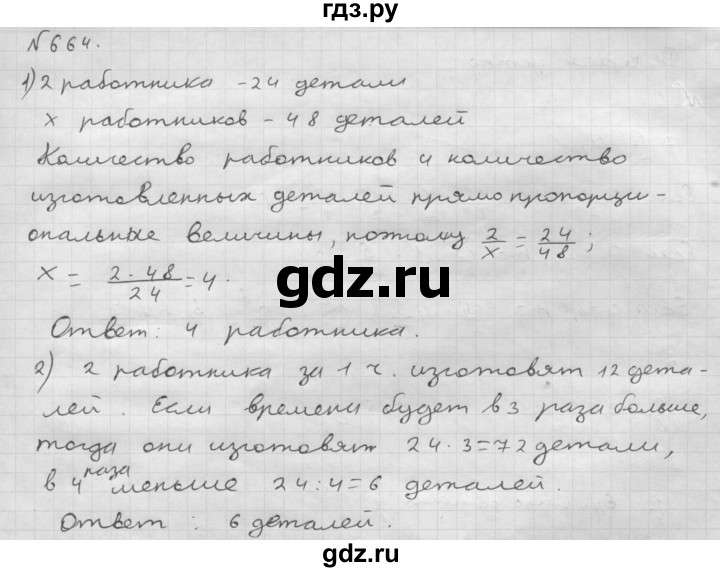 гдз.ру
№664.
1) 2 работника - 24 детали
x работников - 48 деталей
Количество работников и количество
изготовленных деталей прямо пропорци-
ональные величины, поэтому 2/x = 24/48;
x = 2·48/24 = 4.
gdz.ru
Ответ: 4 работника.
2) 2 работника за 1 ч. изготовят 12 дета-
лей. Если времени будет в 3 раза больше,
тогда они изготовят 24·3=72 детали,
в 4 раза меньше 24:4=6 деталей.
Ответ: 6 деталей.
gdz.ru